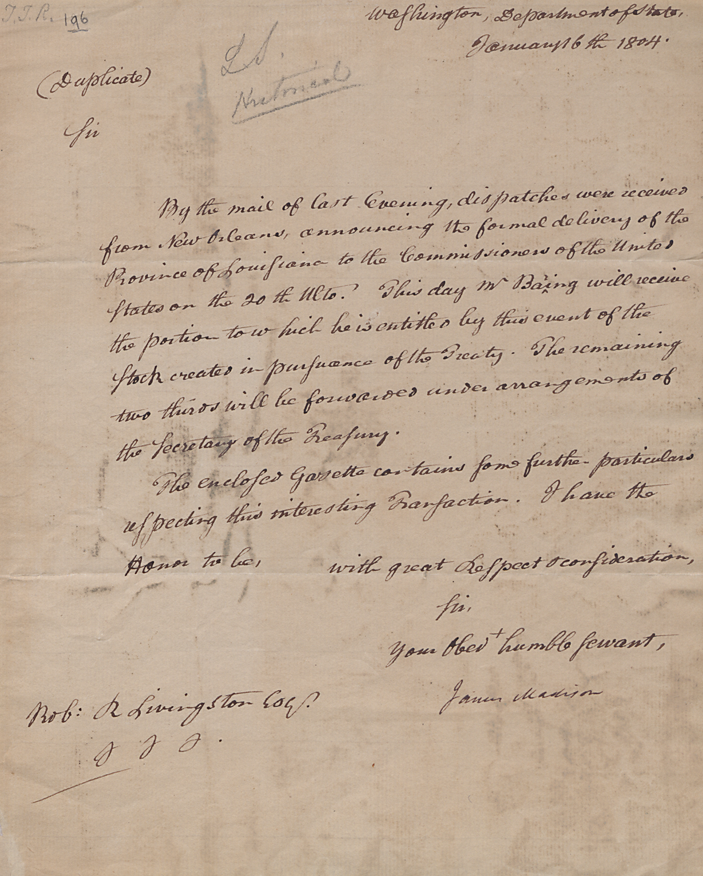 T.J.R. 196
Washington, Department of State,
January 16th 1804.
L.S.
(Duplicate)
Sir
By the mail of last Evening, dispatches were received
from New Orleans, announcing the formal delivery of the
Province of Louisiana to the Commissioners of the United
States on the 20th Ulto. This day Mr Baring will receive
the portion to which he is entitled by this event of the
Stock created in pursuance of the Treaty. The remaining
two thirds will be forwarded under arrangements of
the Secretary of the Treasury.
The enclosed Gazette contains some further particulars
respecting this interesting Transaction. I have the
Honor to be, with great Respect & consideration,
Sir,
Your Obedt humble Servant,
James Madison
Rob: R Livingston Esqr.